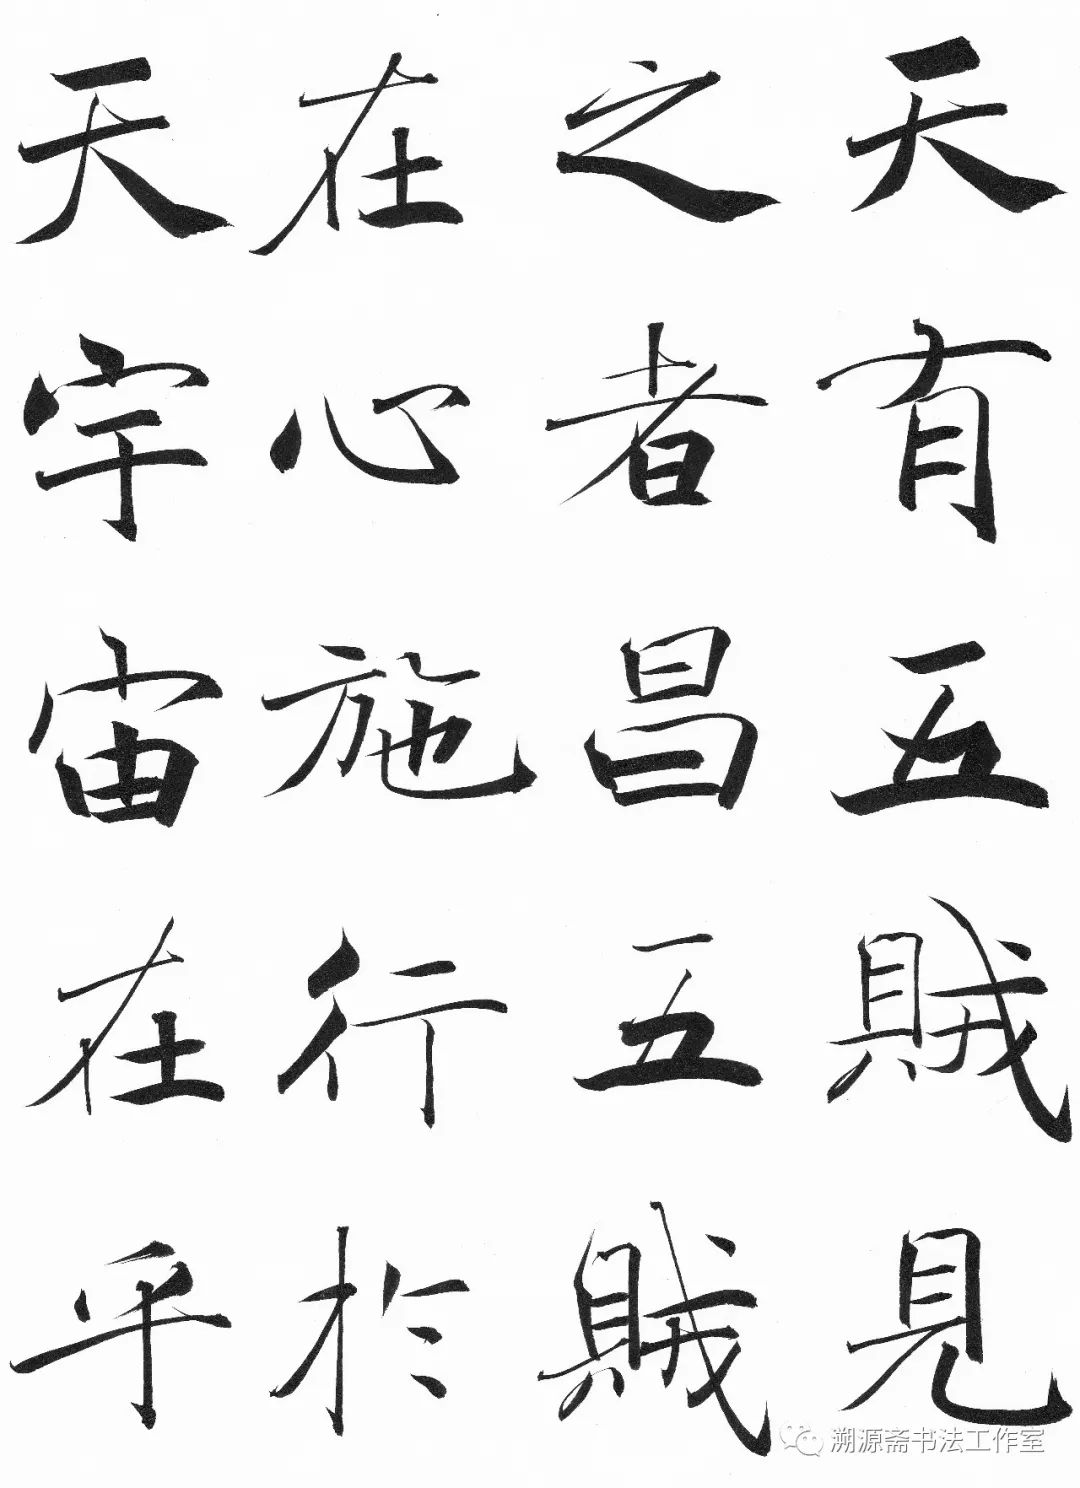 天有五賊見
之者昌五賊
在心施行於
天宇宙在乎
溯源斋书法工作室